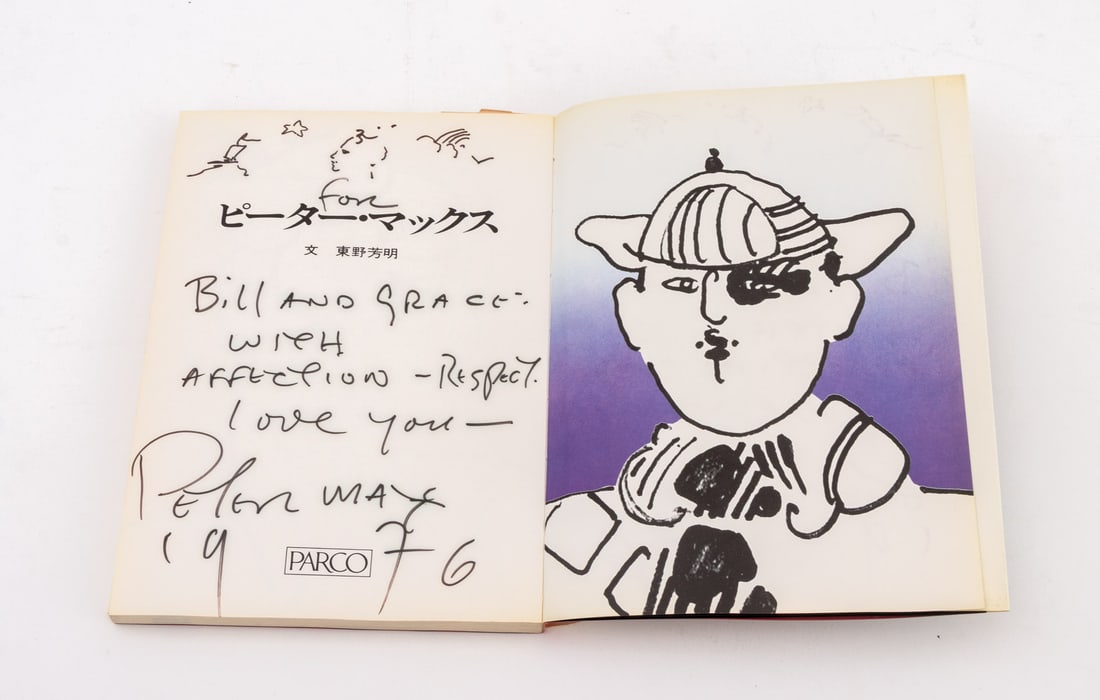 for
ピーター・マックス
文 東野芳明
Bill AND GRACE:
WITH
AFFECTION - RESPECT.
love you —
Peter MAX
1976
PARCO